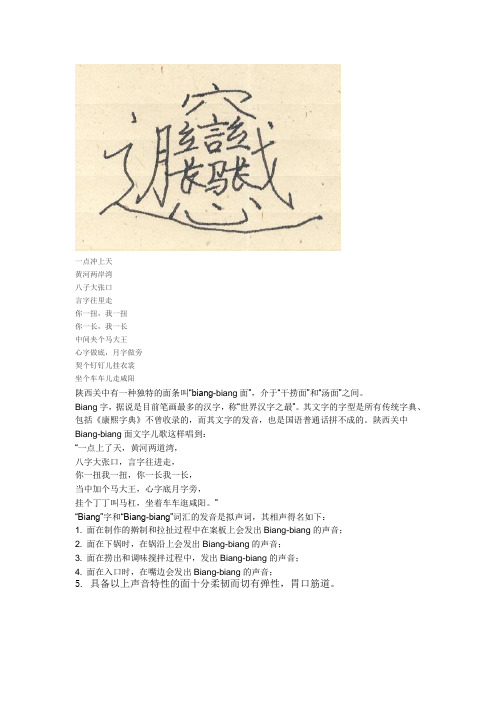 一点冲上天
黄河两岸湾
八子大张口
言字往里走
你一扭，我一扭
你一长，我一长
中间夹个马大王
心字做底，月字做旁
契个钉钉儿挂衣裳
坐个车车儿走咸阳
陕西关中有一种独特的面条叫“biang-biang面”，介于“干捞面”和“汤面”之间。
Biang字，据说是目前笔画最多的汉字，称“世界汉字之最”。其文字的字型是所有传统字典、
包括《康熙字典》不曾收录的，而其文字的发音，也是国语普通话拼不成的。陕西关中
Biang-biang面文字儿歌这样唱到：
“一点上了天，黄河两道湾，
八字大张口，言字往进走，
你一扭我一扭，你一长我一长，
当中加个马大王，心字底月字旁，
挂个丁丁叫马杠，坐着车车逛咸阳。”
“Biang”字和“Biang-biang”词汇的发音是拟声词，其相声得名如下：
1. 面在制作的擀制和拉扯过程中在案板上会发出Biang-biang的声音；
2. 面在下锅时，在锅沿上会发出Biang-biang的声音；
3. 面在捞出和调味搅拌过程中，发出Biang-biang的声音；
4. 面在入口时，在嘴边会发出Biang-biang的声音；
5. 具备以上声音特性的面十分柔韧而切有弹性，胃口筋道。